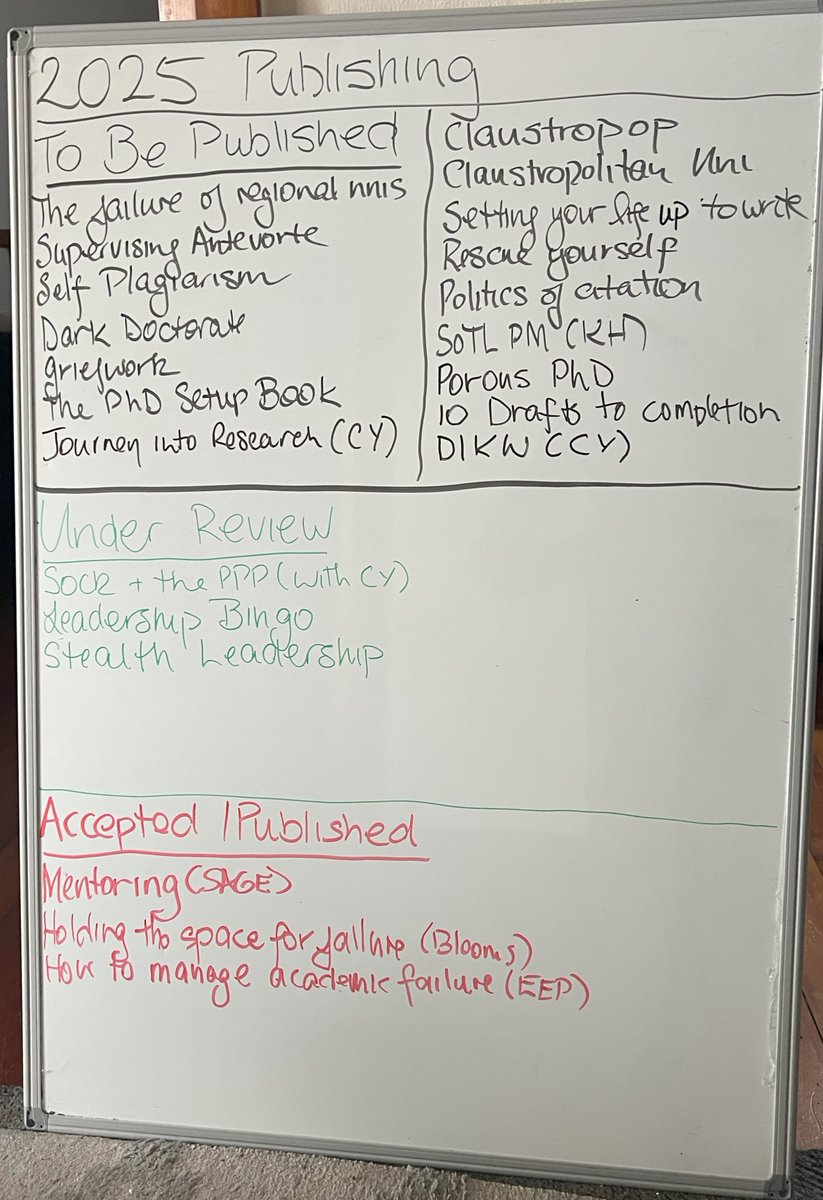 2025 Publishing
To Be Published
The failure of regional unis
Supervising Antevorte
Self Plagiarism
Dark Doctorate
griefwork
The PhD Setup Book
Journey into Research (CY)
Claustropop
Claustropolitan Uni
Setting your life up to write
Rescue yourself
Politics of citation
SoTL PM (KH)
Porous PhD
10 Drafts to completion
DIKW (CY)
Under Review
Sock + the PPP (with CY)
Leadership Bingo
Stealth Leadership
Accepted / Published
Mentoring (SAGE)
Holding the space for failure (Blooms)
How to manage academic failure (EEP)